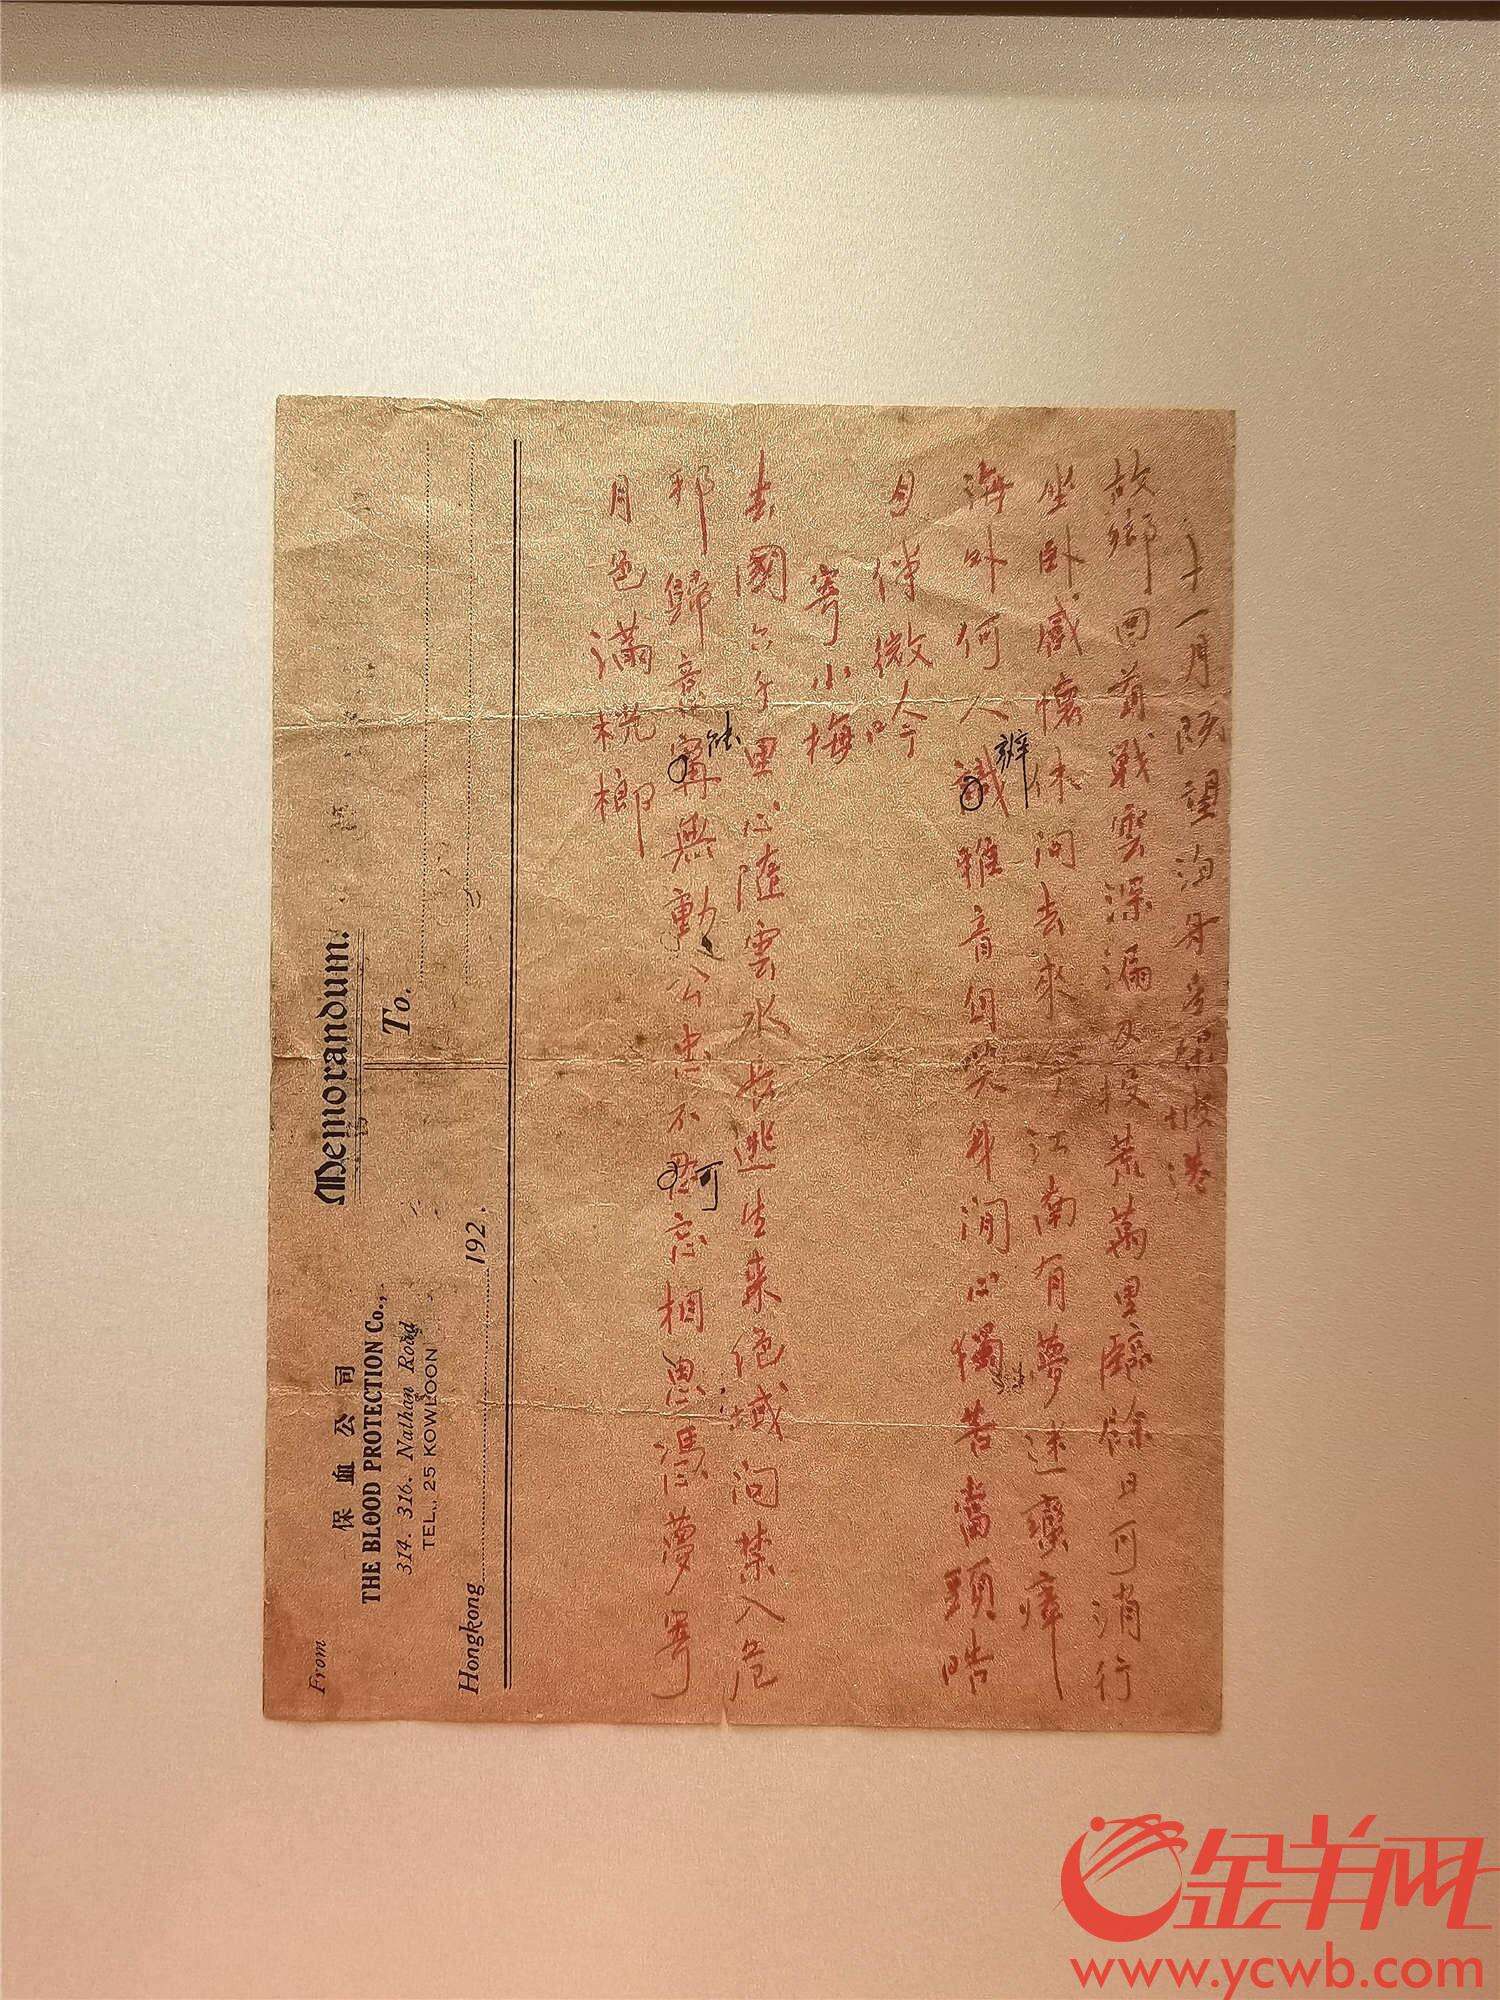 十一月既望泊舟
故鄉回首戰雲深漏夜投荒萬里臨餘日可消行
坐卧感懷休問去來今江南有夢迷瘴
海外何人識雅音自笑身閒心獨苦當頭皓
辨
月伴微吟
寄小梅
去國六千里心隨雲水長逃生來絕域問禁入危
邦歸意寧無動公忠不忘相思憑夢寄
可
月色滿桄榔
From
保血公司
THE BLOOD PROTECTION Co.,
314. 316. Nathan Road
TEL., 25 KOWLOON
Memorandum.
To.
Hongkong 192 .
金羊网
www.ycwb.com